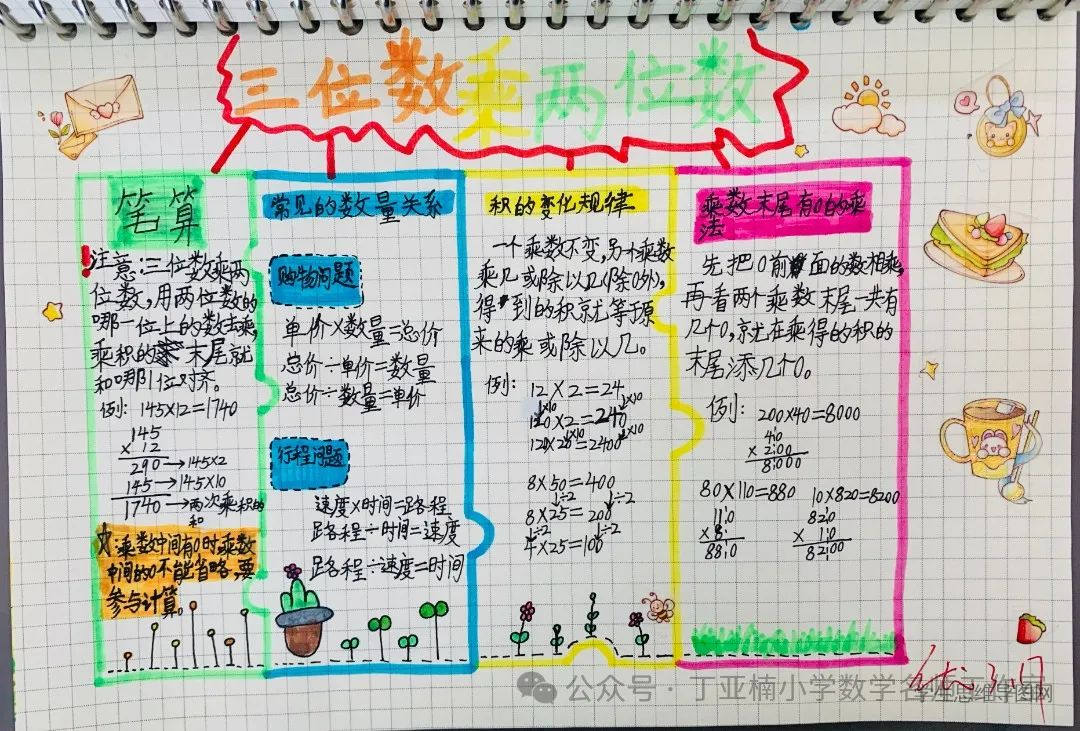 三位数乘两位数
笔算
注意:三位数乘两
位数,用两位数的
哪一位上的数去乘,
乘积的末尾就
和哪位对齐。
例:145×12=1740
145
× 12
290→145×2
145→145×10
1740→两次乘积的
和
☆:乘数中间有0时,乘数
中间的0不能省略,要
参与计算。
常见的数量关系
购物问题
单价×数量=总价
总价÷单价=数量
总价÷数量=单价
行程问题
速度×时间=路程
路程÷时间=速度
路程÷速度=时间
积的变化规律
一个乘数不变,另个乘数
乘几或除以几(除0外),
得到的积就等于原
来的乘或除以几。
例:
12×2=24
↓×10 ↓×10
120×2=240
↓×10 ↓×10
120×20=2400
8×50=400
↓÷2 ↓÷2
8×25=200
↓÷2 ↓÷2
4×25=100
乘数末尾有0的乘
法
先把0前面的数相乘,
再看两个乘数末尾一共有
几个0,就在乘得的积的
末尾添几个0。
例:200×40=8000
40
× 200
8000
80×110=880 10×820=8200
110
× 8
880
820
× 10
8200
公众号·丁亚楠小学数学名
学生思维导图网